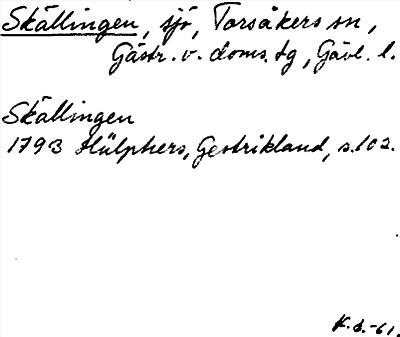 Skällingen, sjö, Torsåkers sn,
Gästr. v. doms. tg, Gävl. l.
Skällingen
1793 Hülphers, Gestrikland, s. 102.
K.d.-61.